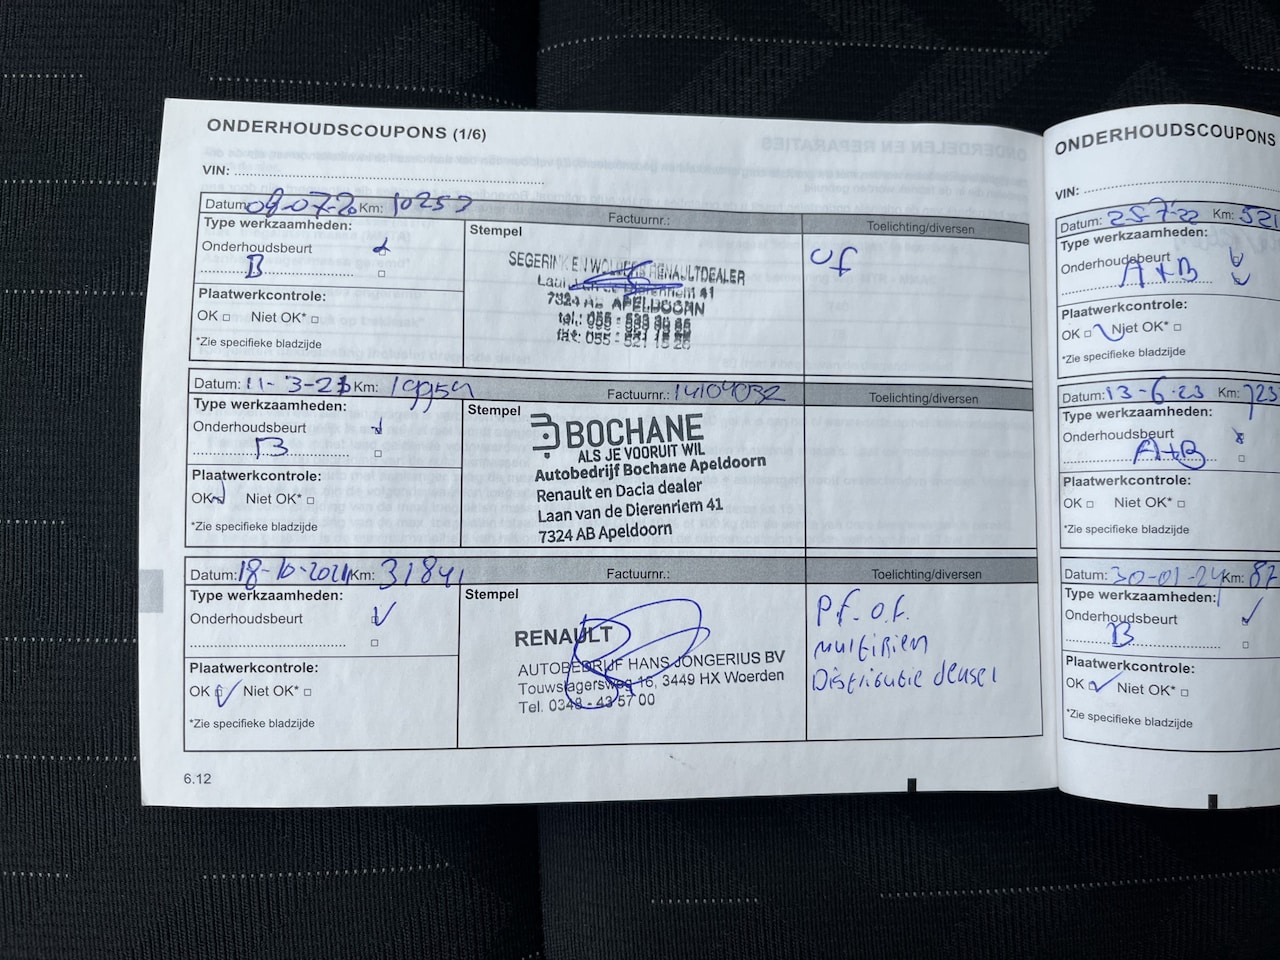 ONDERHOUDSCOUPONS (1/6)
VIN:
Datum: 09-07-20 Km: 10253 Factuurnr.: Toelichting/diversen
Type werkzaamheden:
Onderhoudsbeurt
B
Plaatwerkcontrole:
OK □ Niet OK* □
*Zie specifieke bladzijde
Stempel
SEGERINK EN RENAULTDEALER
Laan van de Dierenriem 41
7324 AB APELDOORN
tel.: 055 -
fax: 055 - 521 18 26
of
Datum: 11-3-21 Km: 19959 Factuurnr.: 14104032 Toelichting/diversen
Type werkzaamheden:
Onderhoudsbeurt
B
Plaatwerkcontrole:
OK Niet OK* □
*Zie specifieke bladzijde
Stempel
BOCHANE
ALS JE VOORUIT WIL
Autobedrijf Bochane Apeldoorn
Renault en Dacia dealer
Laan van de Dierenriem 41
7324 AB Apeldoorn
Datum: 18-10-2021 Km: 31841 Factuurnr.: Toelichting/diversen
Type werkzaamheden:
Onderhoudsbeurt
Plaatwerkcontrole:
OK Niet OK* □
*Zie specifieke bladzijde
Stempel
RENAULT
AUTOBEDRIJF HANS JONGERIUS BV
Touwslagersweg 16, 3449 HX Woerden
Tel. 0348 - 43 57 00
Pf. o.f.
multiriem
Distributie deksel
6.12
ONDERHOUDSCOUPONS
VIN:
Datum: 25-7-22 Km: 521
Type werkzaamheden:
Onderhoudsbeurt
A+B
Plaatwerkcontrole:
OK □ Niet OK* □
*Zie specifieke bladzijde
Datum: 13-6-23 Km: 723
Type werkzaamheden:
Onderhoudsbeurt
A+B
Plaatwerkcontrole:
OK □ Niet OK* □
*Zie specifieke bladzijde
Datum: 30-01-24 Km: 87
Type werkzaamheden:
Onderhoudsbeurt
B
Plaatwerkcontrole:
OK Niet OK* □
*Zie specifieke bladzijde